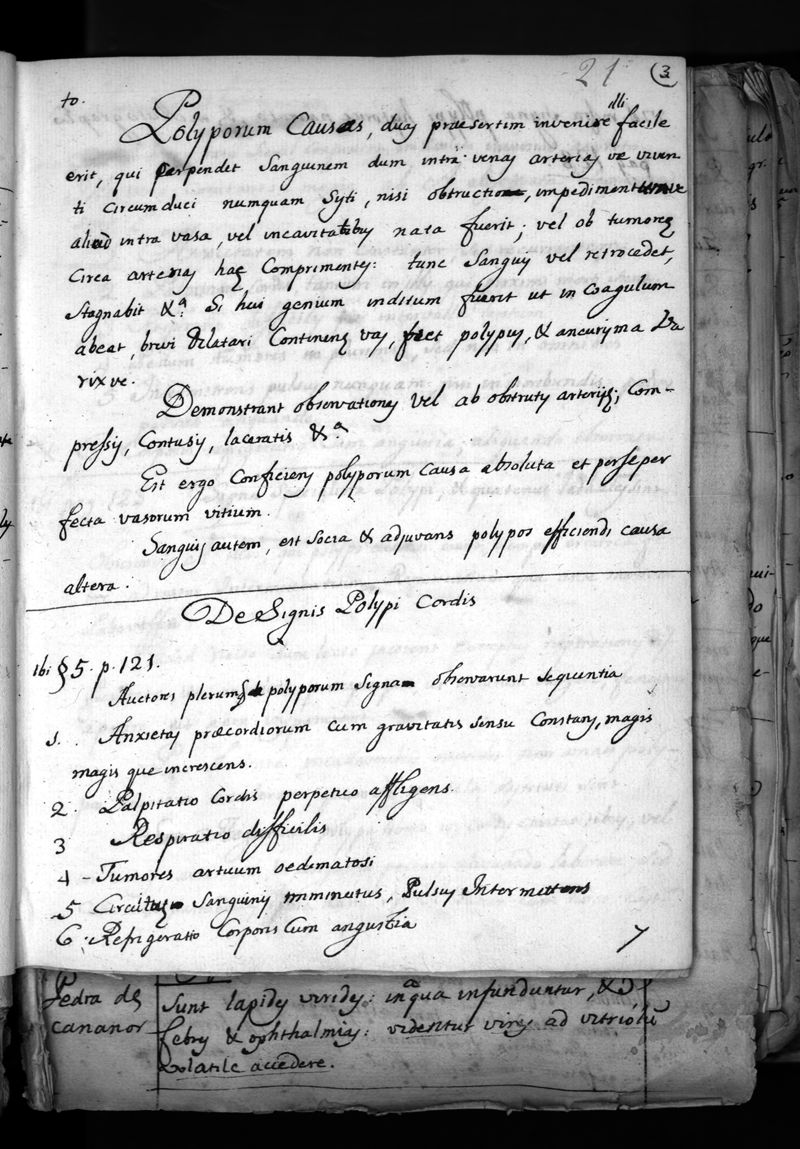 21 3
to.
illi
Polyporum Causas, duas praesertim invenire facile
erit, qui perpendet Sanguinem dum intra venas arterias ve viven
ti Circumduci numquam Systi, nisi obstructio, impedimentumve
aliud intra vasa, vel incavitatibus nata fuerit; vel ob tumores
Circa arterias has Comprimentes: tunc Sanguis vel retrocedet,
Stagnabit &a. Si hui genium inditum fuerit ut in Coagulum
abeat, brevi dilatari Continens vas, fiet polypus, & aneurisma Va
rixve.
Demonstrant observationes vel ab obstrutis arteriis, Com-
pressis, Contusis, laceratis &a
Est ergo Conficiens polyporum Causa absoluta et perse per
fecta vasorum vitium.
Sanguis autem, est Socia & adjuvans polypos efficiendi causa
altera.
De Signis Polypi Cordis
ibi § 5. p. 121.
Auctores plerumq polyporum Signa observarunt Sequentia
1. Anxietas praecordiorum Cum gravitatis Sensu Constans, magis
magis que increscens.
2. Palpitatio Cordis perpetuo affligens.
3 Respiratio difficilis
4 - Tumores artuum oedimatosi
5 Circulus Sanguinis imminutus, Pulsus Intermittens
6. Refrigeratio Corporis Cum angustia
7
Pedra de
Cananor
Sunt lapides virides: in aqua infunduntur, &
febris & ophthalmias: videntur vires ad vitriolu
Volatile accedere.